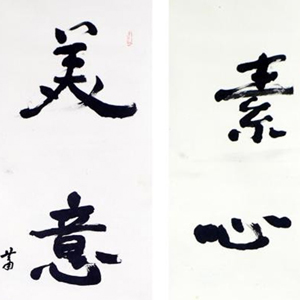 素心
美意